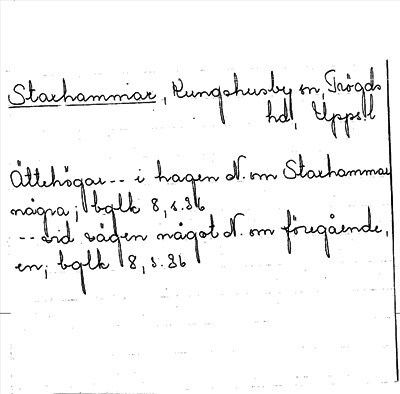 Starhammar, Kungshusby sn, Trögds
hd, Upps. l
Ättehögar -- i hagen N. om Starhammar
några; bglk 8, s. 36
-- vid vägen något N. om föregående,
en; bglk 8, s. 36